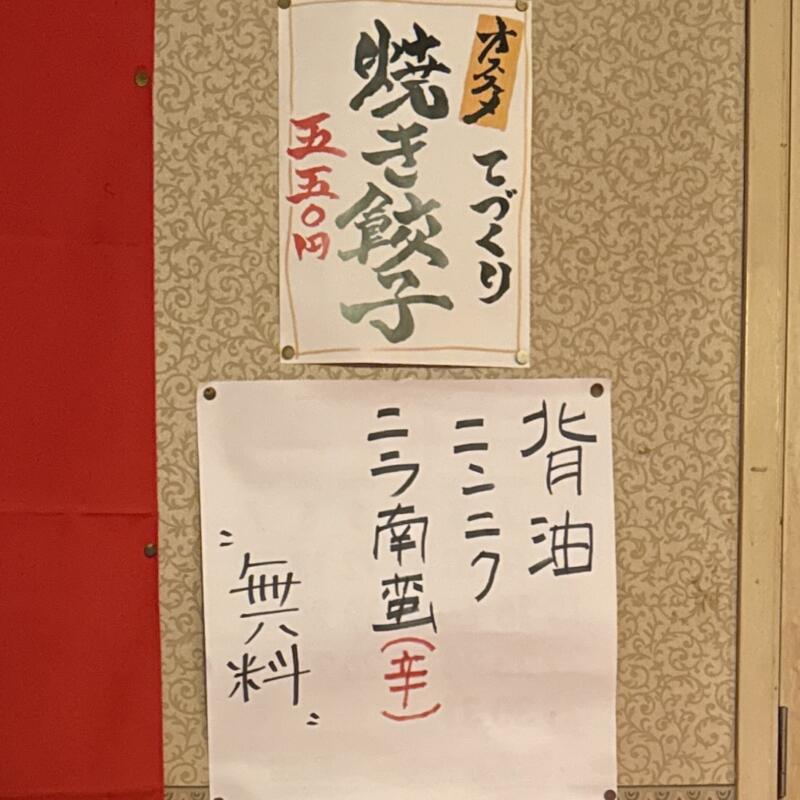 オススメ
てづくり
焼き餃子
五五〇円
背油
ニンニク
ニラ南蛮(辛)
"無料"